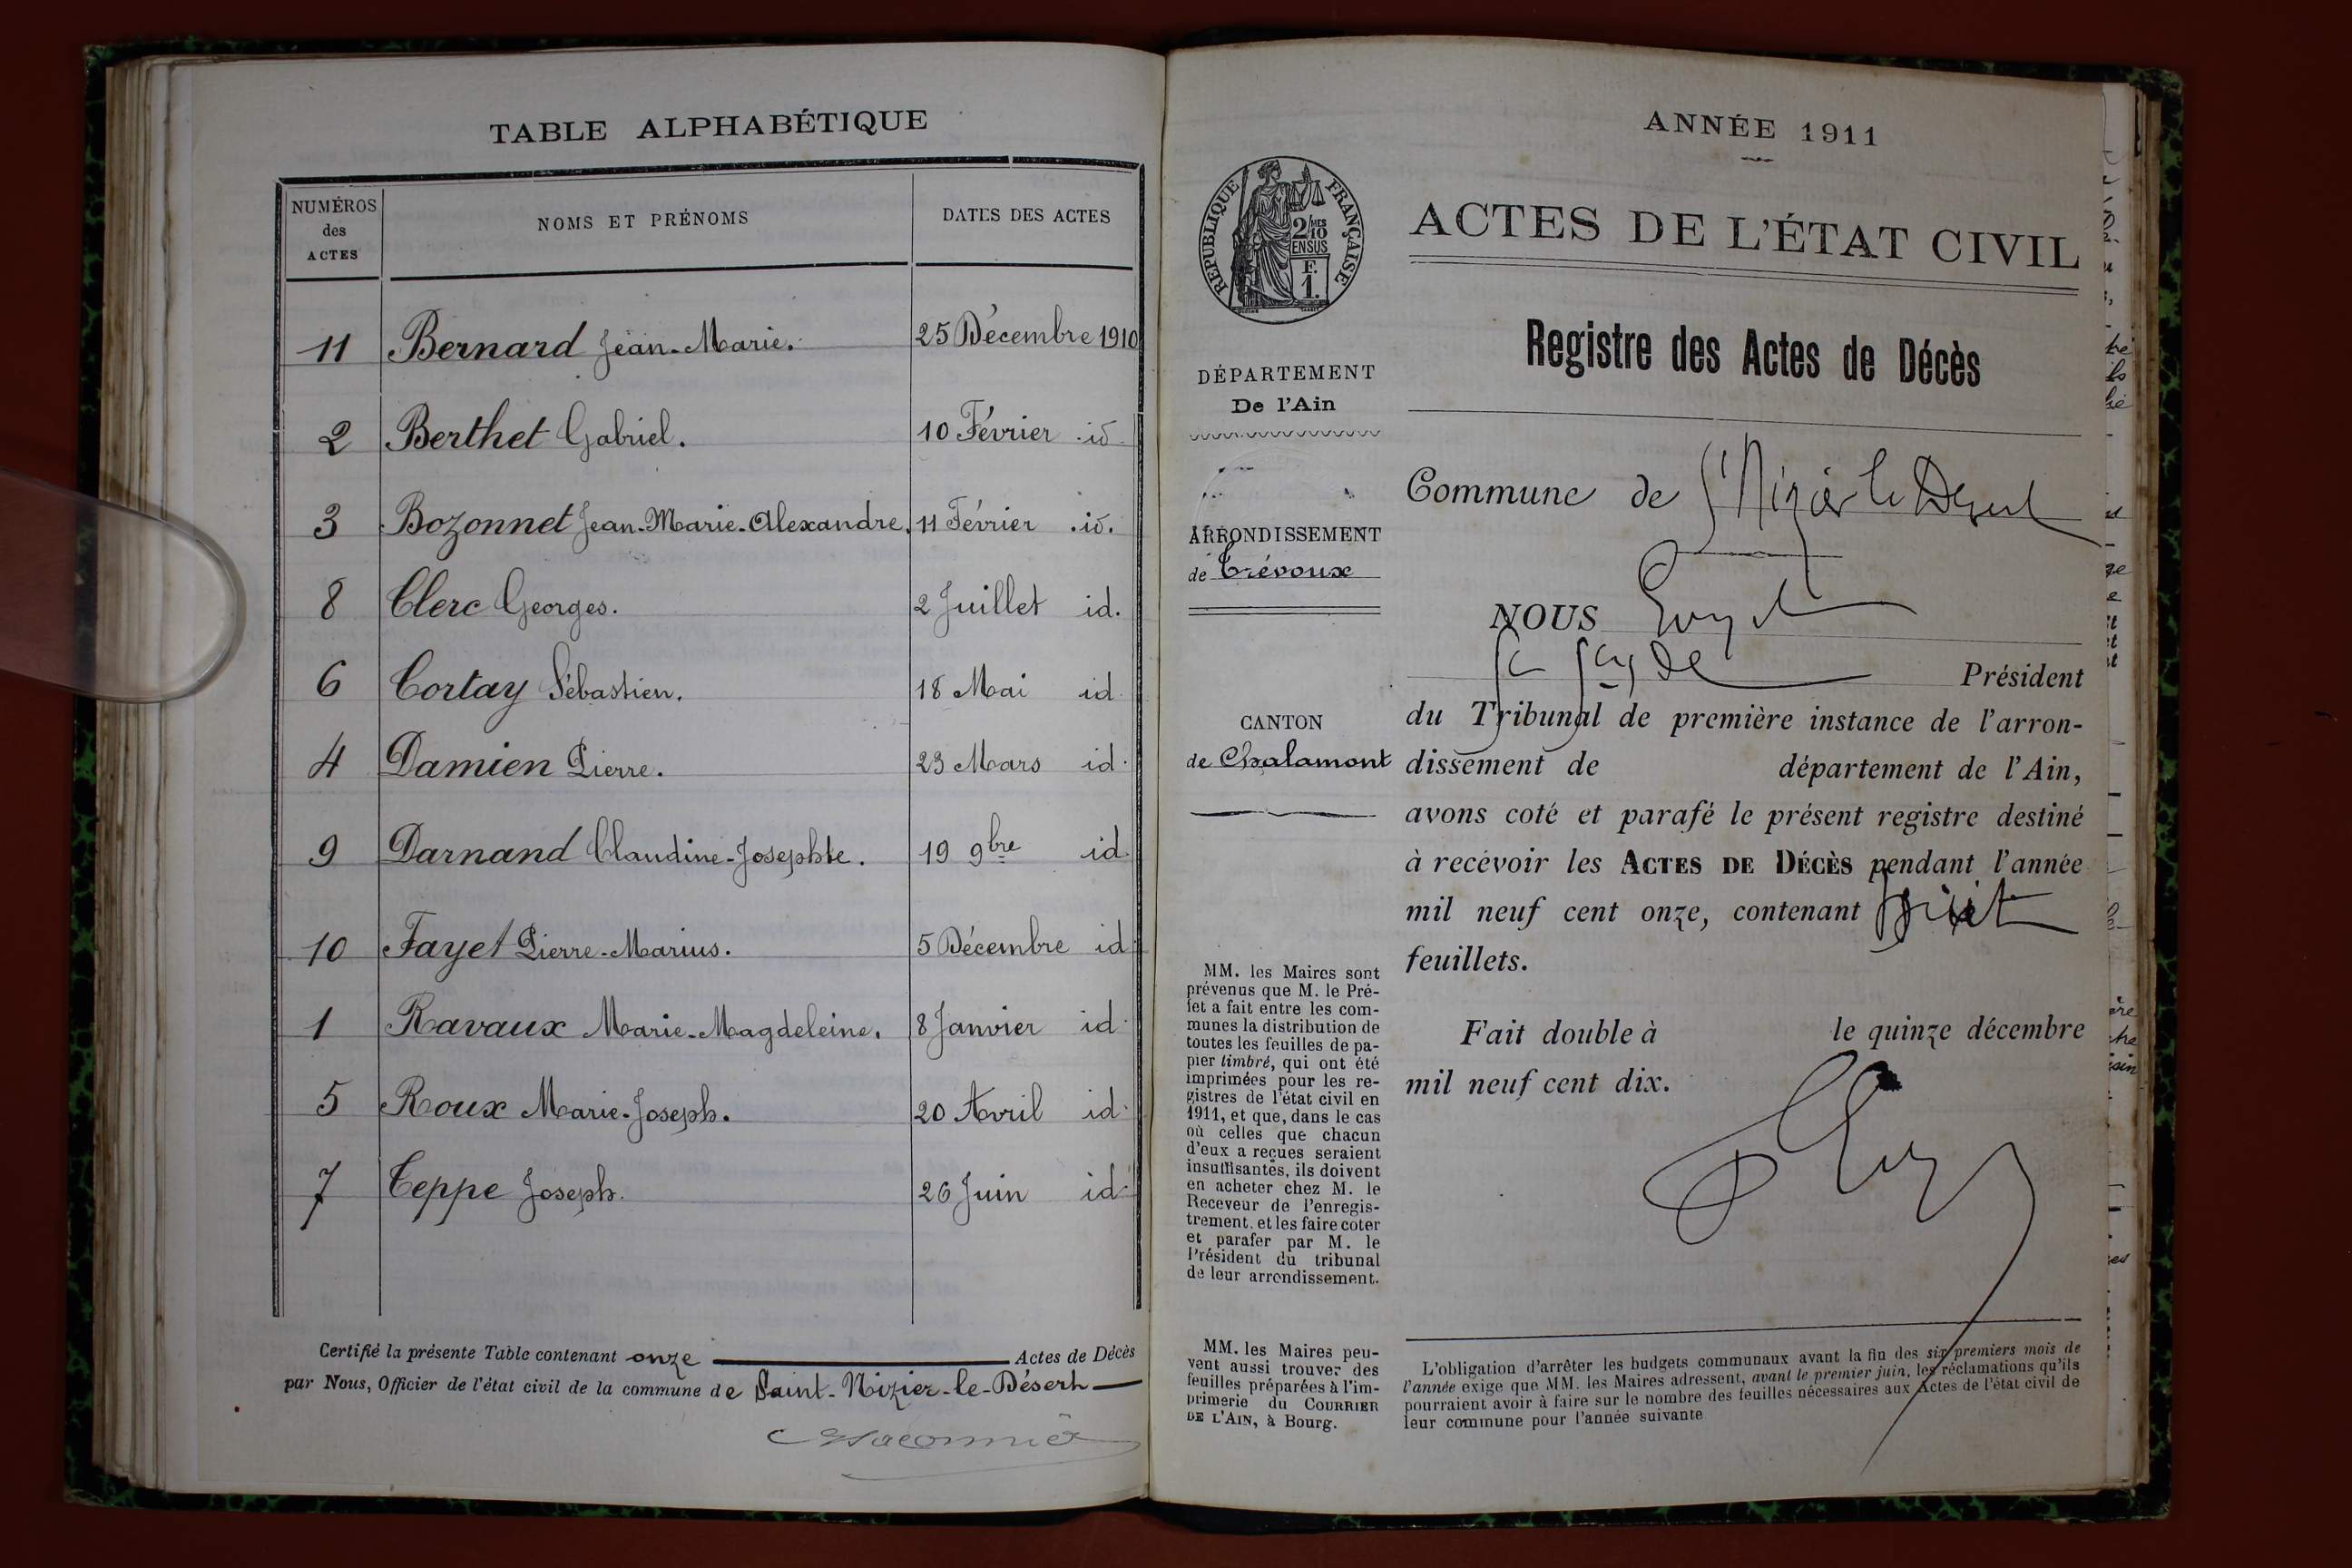 TABLE ALPHABÉTIQUE
NUMÉROS des ACTES
NOMS ET PRÉNOMS
DATES DES ACTES
11 Bernard Jean-Marie. 25 Décembre 1910
2 Berthet Gabriel. 10 Février id.
3 Bozonnet Jean-Marie-Alexandre. 11 Février id.
8 Clerc Georges. 2 Juillet id.
6 Cortay Sébastien. 18 Mai id.
4 Damien Pierre. 23 Mars id.
9 Darnand Claudine-Josephte. 19 9bre id.
10 Fayet Pierre-Marius. 5 Décembre id.
1 Ravaux Marie-Magdeleine. 8 Janvier id.
5 Roux Marie-Joseph. 20 Avril id.
7 Teppe Joseph. 26 Juin id.
Certifié la présente Table contenant onze Actes de Décès
par Nous, Officier de l'état civil de la commune de Saint-Nizier-le-Désert
RÉPUBLIQUE FRANÇAISE
2/10
EN SUS
F.
1.
DÉPARTEMENT
De l'Ain
ARRONDISSEMENT
de Trévoux
CANTON
de Chalamont
MM. les Maires sont
prévenus que M. le Pré-
fet a fait entre les com-
munes la distribution de
toutes les feuilles de pa-
pier timbré, qui ont été
imprimées pour les re-
gistres de l'état civil en
1911, et que, dans le cas
où celles que chacun
d'eux a reçues seraient
insuffisantes, ils doivent
en acheter chez M. le
Receveur de l'enregis-
trement, et les faire coter
et parafer par M. le
Président du tribunal
de leur arrondissement.
MM. les Maires peu-
vent aussi trouver des
feuilles préparées à l'im-
primerie du COURRIER
DE L'AIN, à Bourg.
ANNÉE 1911
ACTES DE L'ÉTAT CIVIL
Registre des Actes de Décès
Commune de St Nizier le Désert
NOUS
Président
du Tribunal de première instance de l'arron-
dissement de département de l'Ain,
avons coté et parafé le présent registre destiné
à recevoir les ACTES DE DÉCÈS pendant l'année
mil neuf cent onze, contenant
feuillets.
Fait double à le quinze décembre
mil neuf cent dix.
L'obligation d'arrêter les budgets communaux avant la fin des six premiers mois de
l'année exige que MM. les Maires adressent, avant le premier juin, les réclamations qu'ils
pourraient avoir à faire sur le nombre des feuilles nécessaires aux Actes de l'état civil de
leur commune pour l'année suivante